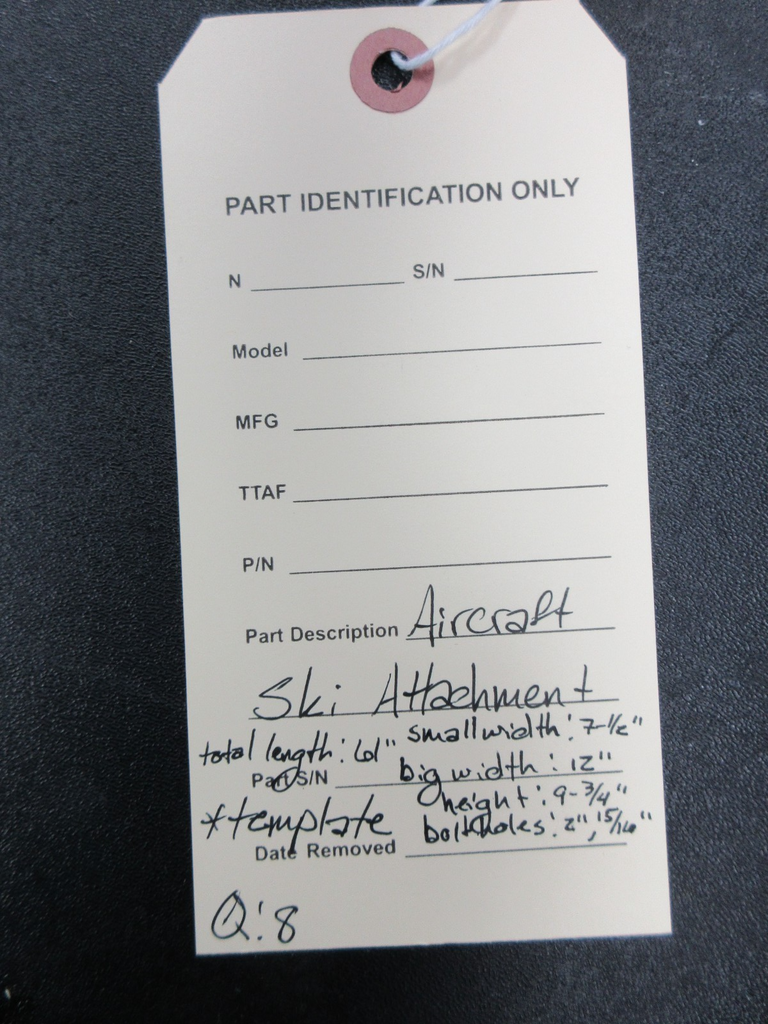 PART IDENTIFICATION ONLY
N S/N
Model
MFG
TTAF
P/N
Part Description Aircraft
Ski Attachment
total length: 61" small width: 7-1/2"
Part S/N big width: 12"
height: 9-3/4"
*template bolt holes: 2", 15/16"
Date Removed
Q: 8